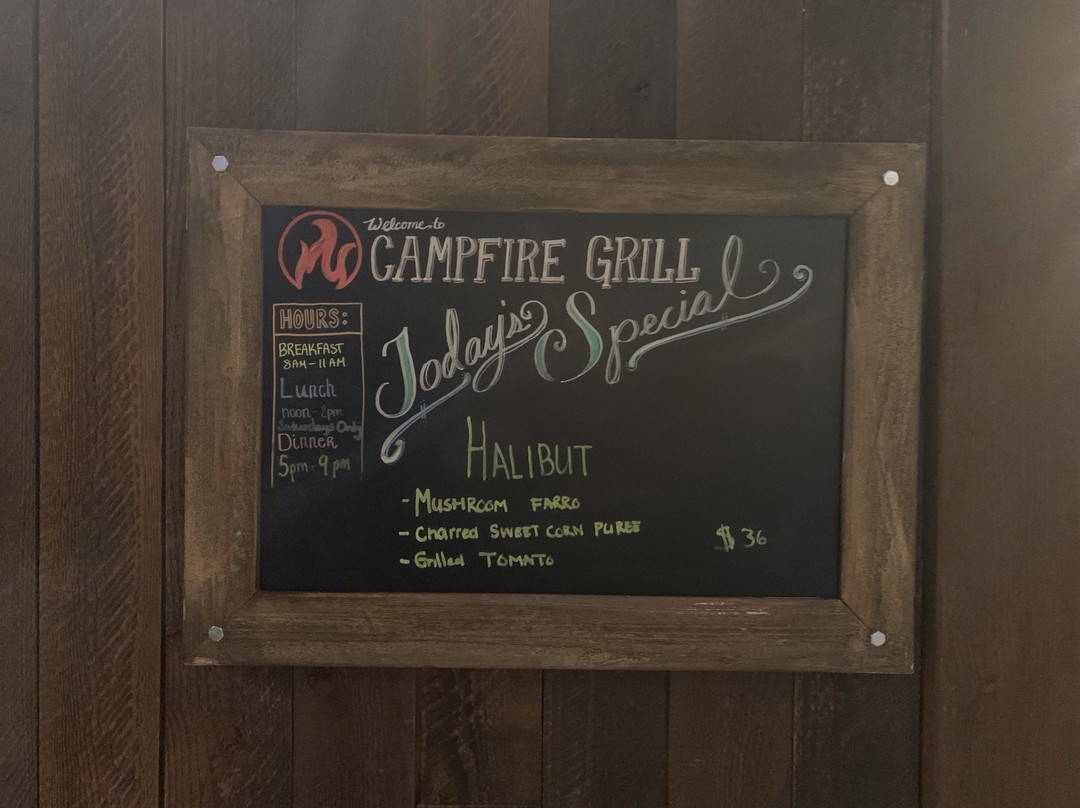 Welcome to
CAMPFIRE GRILL
Today's Special
HOURS:
BREAKFAST
8AM - 11AM
Lunch
noon - 2pm
Saturdays Only
Dinner
5pm - 9pm
HALIBUT
- MUSHROOM FARRO
- Charred SWEET CORN PUREE
- Grilled TOMATO
$36